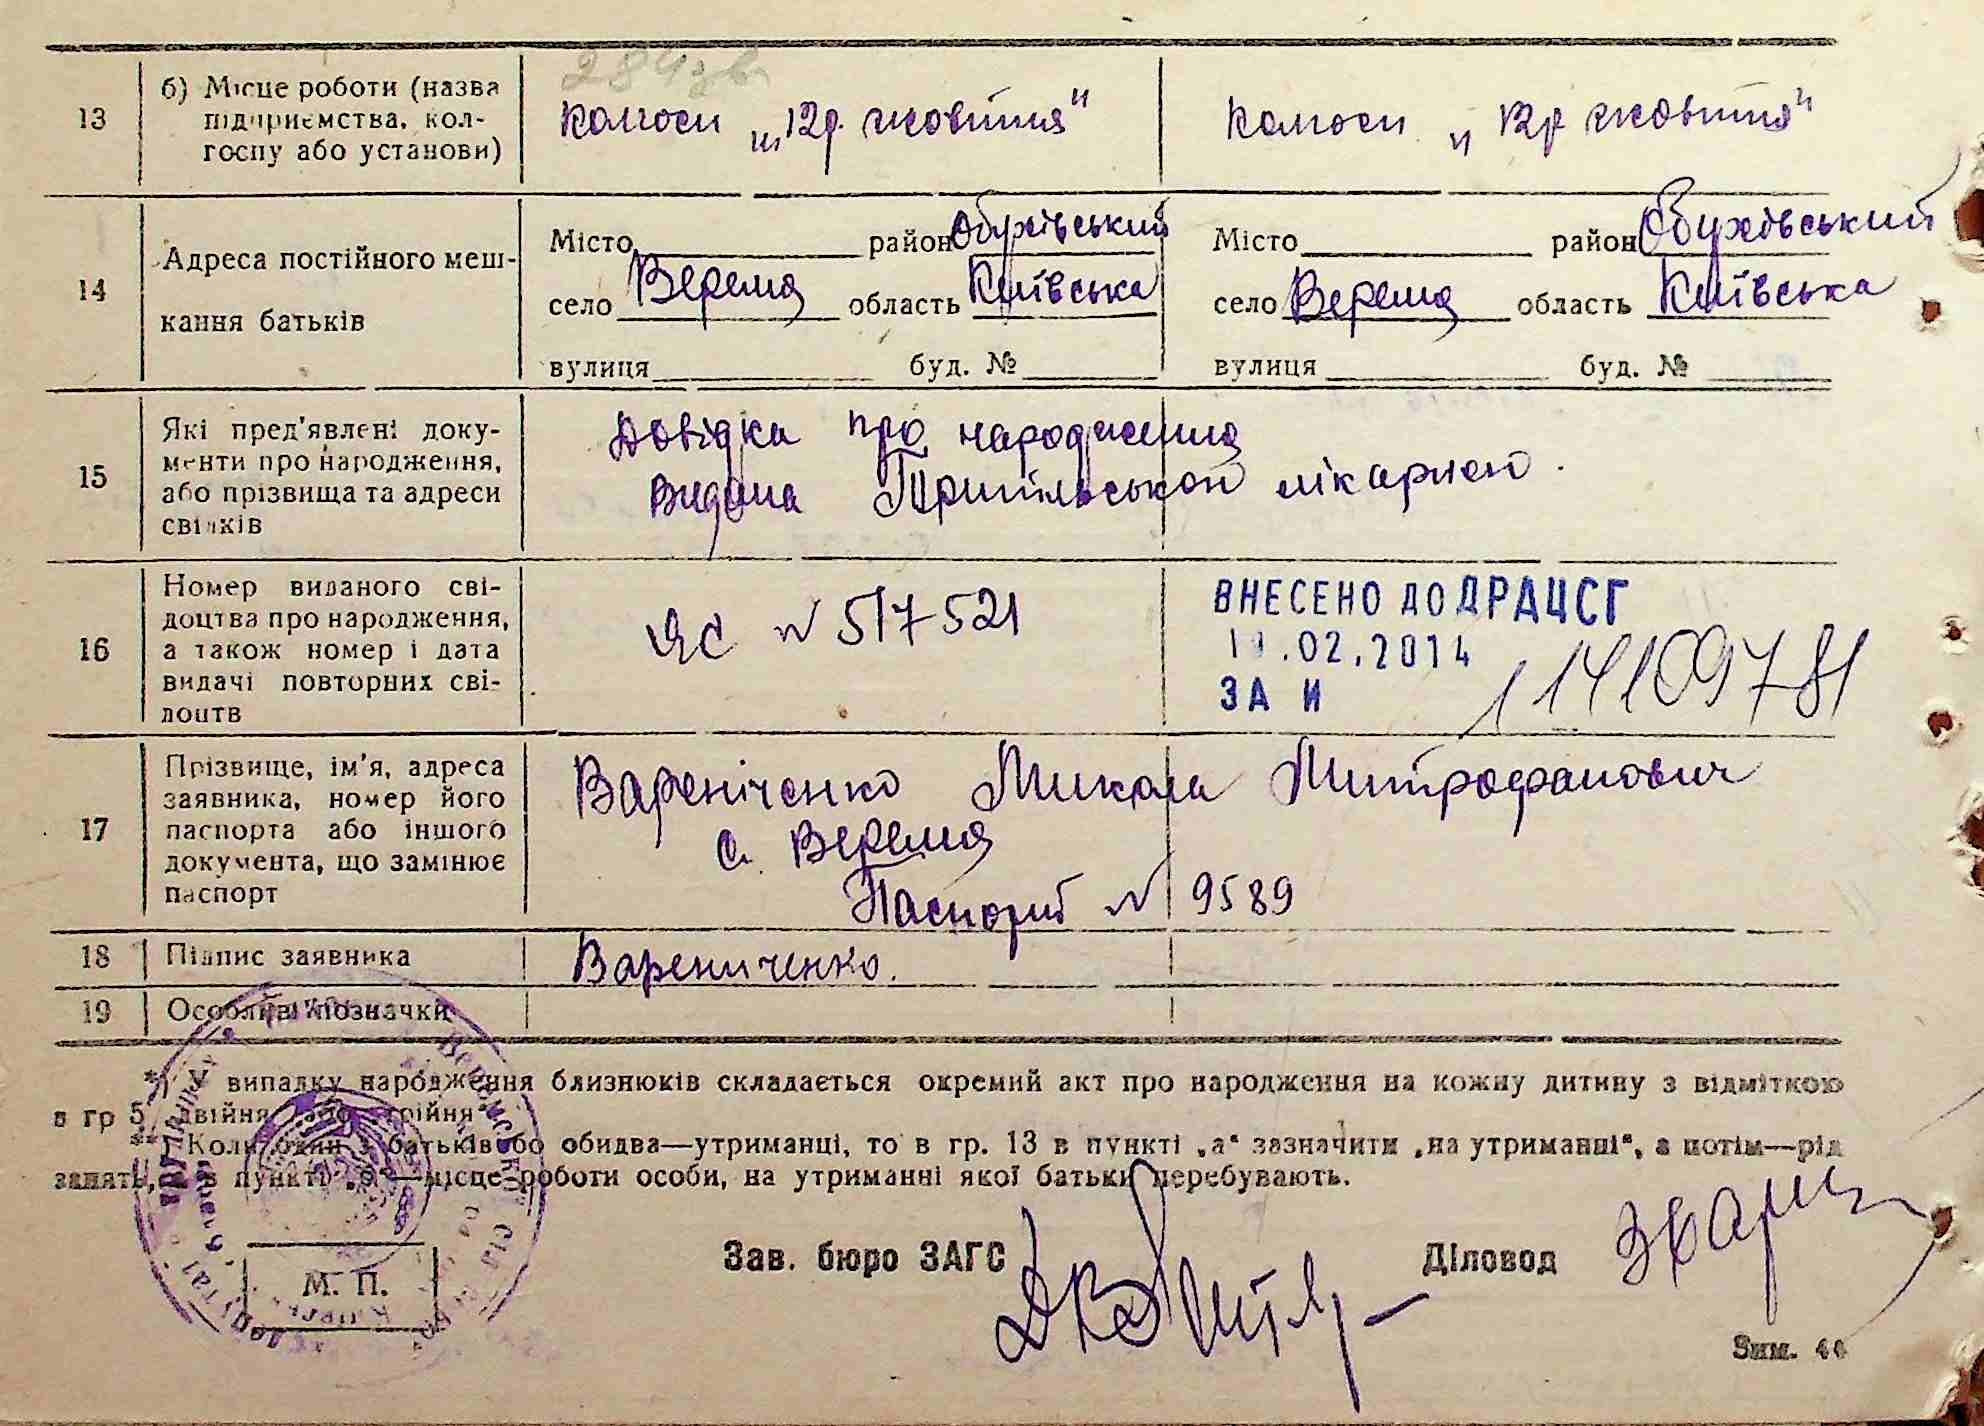 13
б) Місце роботи (назва
підприємства, кол-
госпу або установи)
колгосп „12р. жовтня"
колгосп „12р жовтня"
14
Адреса постійного меш-
кання батьків
Місто район Обухівський
село Верем'я область Київська
вулиця буд. №
Місто район Обухівський
село Верем'я область Київська
вулиця буд. №
15
Які пред'явлені доку-
менти про народження,
або прізвища та адреси
свідків
Довідка про народження
видана Трипільською лікарнею.
16
Номер виданого сві-
доцтва про народження,
а також номер і дата
видачі повторних сві-
доцтв
ЯС № 517521
ВНЕСЕНО ДО ДРАЦСГ
.02.2014
ЗА И
114109781
17
Прізвище, ім'я, адреса
заявника, номер його
паспорта або іншого
документа, що замінює
паспорт
Вареніченко Микола Митрофанович
с. Верем'я
Паспорт № 9589
18
Підпис заявника
Варениченко.
19
Особливі позначки
*) У випадку народження близнюків складається окремий акт про народження на кожну дитину з відміткою
в гр 5 двійня або трійня.
**) Коли один з батьків або обидва—утриманці, то в гр. 13 в пункті „а" зазначити „на утриманні", а потім—рід
занять, а в пункті „б"—місце роботи особи, на утриманні якої батьки перебувають.
Зав. бюро ЗАГС
Діловод
М. П.
Зим. 44